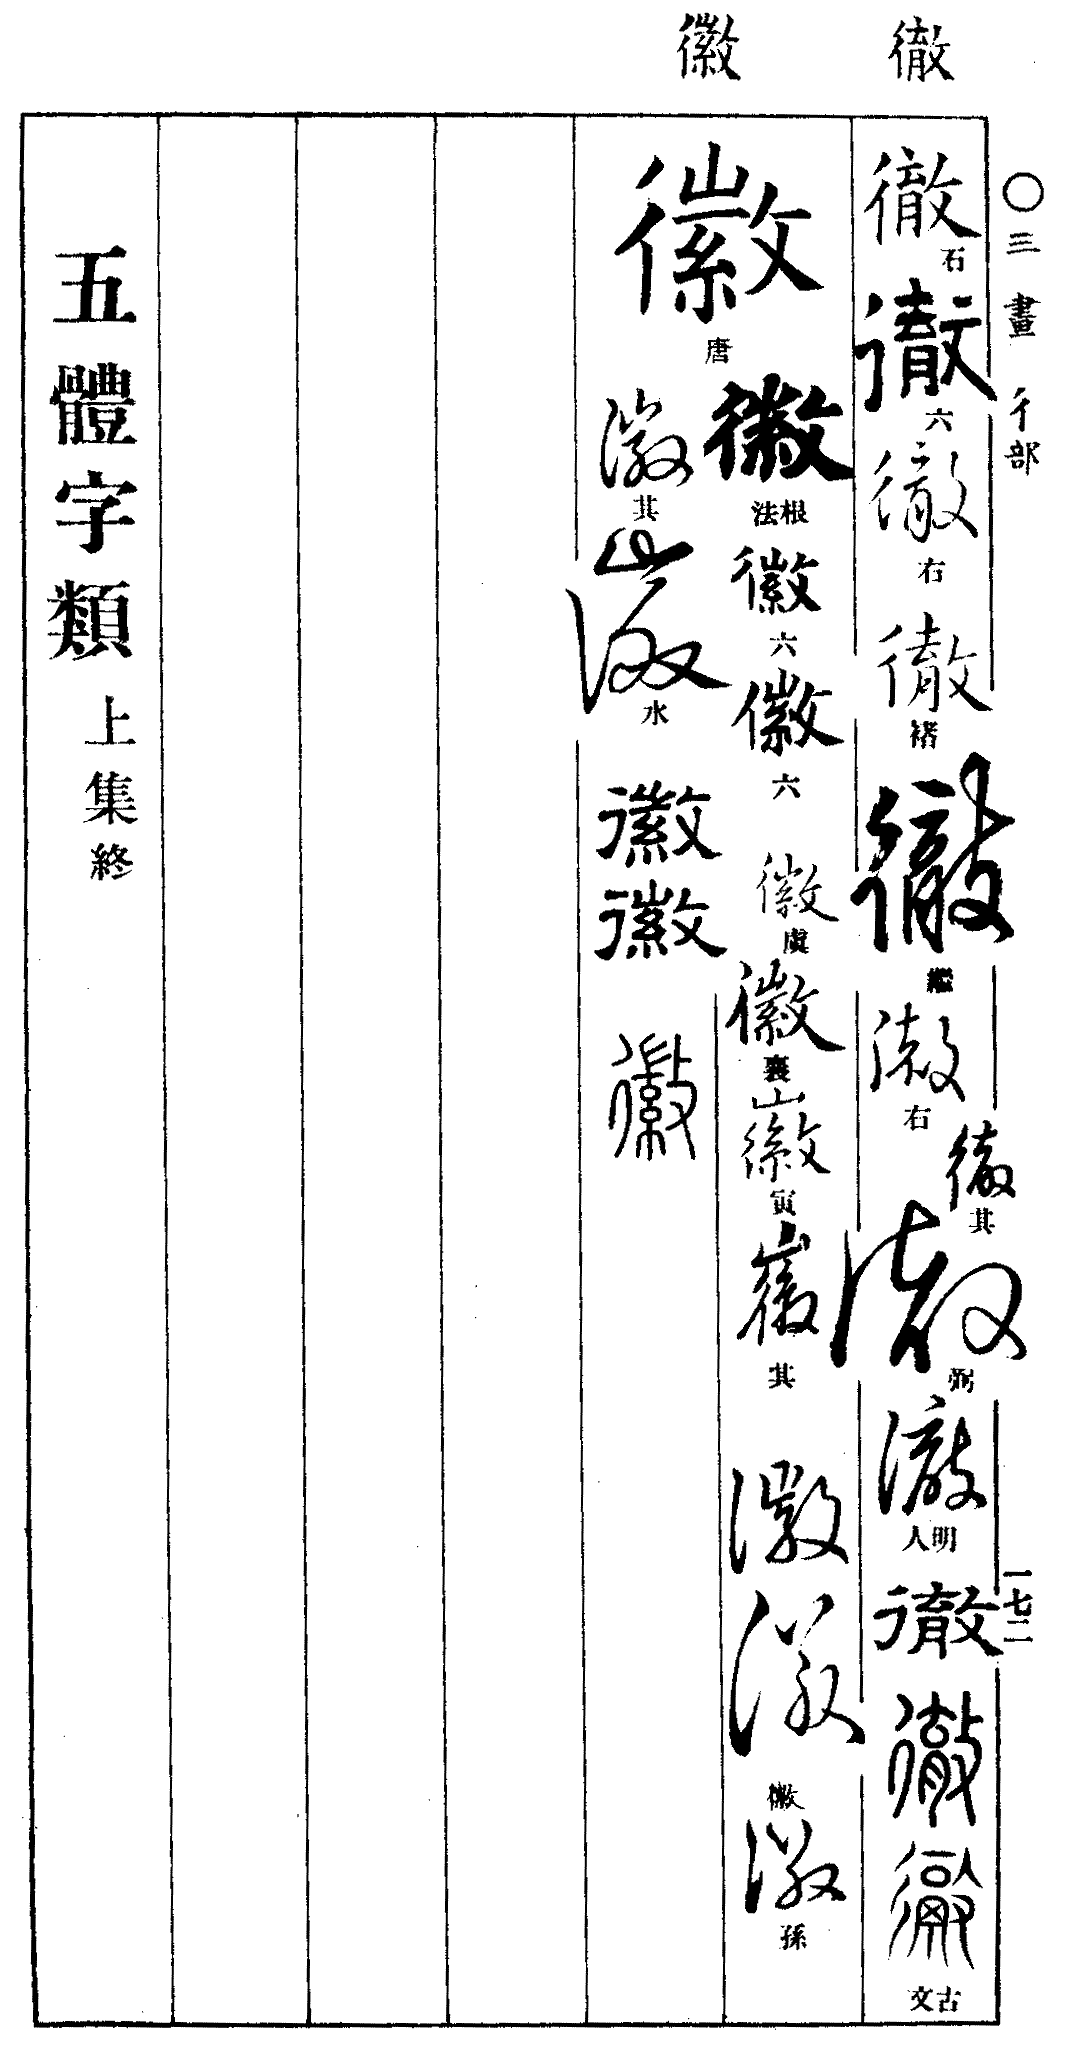 徹
徽
○三畫 彳部
一七二
徹 石
徹 六
徹 右
徹 褚
徹 繼
徹 右
徹 其
徹 弼
徹 明人
徹
徹
徹 古文
徽 唐
徽 根法
徽 六
徽 六
徽 虞
徽 襄
徽 寅
徽 其
徽
徽
徽
徽 孫
徽 其
徽 水
徽
徽
徽
五體字類 上集終